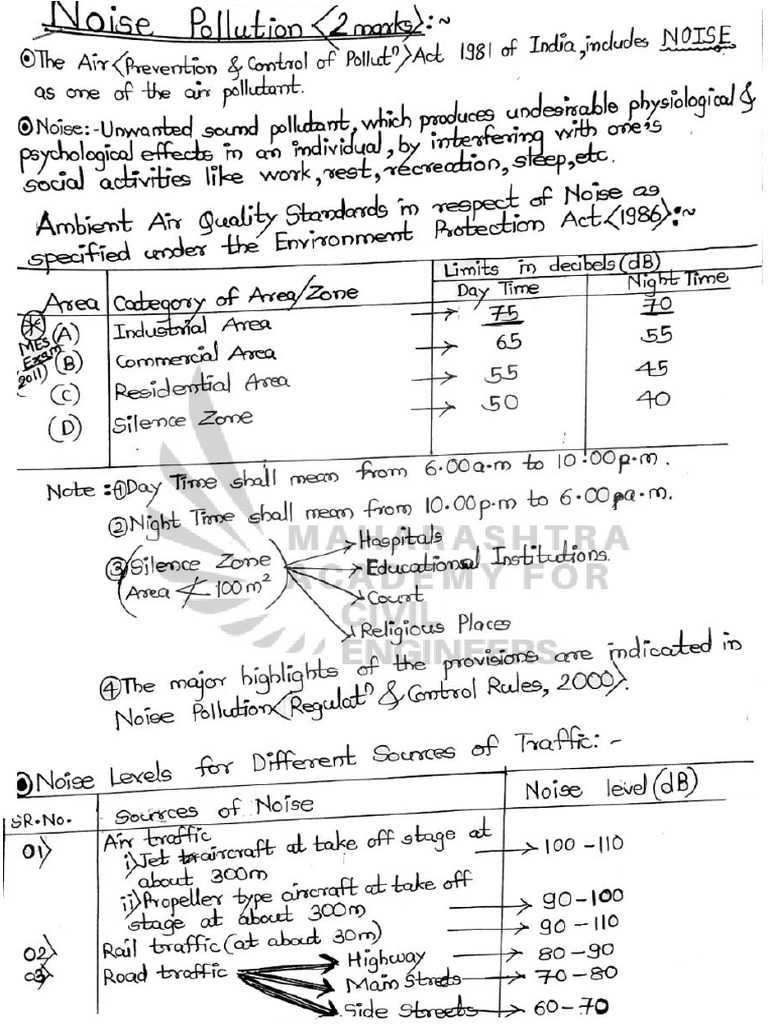 Noise Pollution <2 marks>:~
⦿The Air <Prevention & Control of Pollutⁿ> Act 1981 of India, includes NOISE
as one of the air pollutant.
⦿Noise:- Unwanted sound pollutant, which produces undesirable physiological &
psychological effects in an individual, by interfering with one's
social activities like work, rest, recreation, sleep, etc.
Ambient Air Quality Standards in respect of Noise as
specified under the Environment Protection Act <1986>:~
Limits in decibels (dB)
Area Category of Area/Zone Day Time Night Time
(A) Industrial Area → 75 70
MES Exam 2011
(B) Commercial Area → 65 55
(C) Residential Area → 55 45
(D) Silence Zone → 50 40
Note :- ① Day Time shall mean from 6.00 a.m to 10.00 p.m.
② Night Time shall mean from 10.00 p.m to 6.00 a.m.
③ Silence Zone (Area ≮ 100 m²)
→ Hospitals
→ Educational Institutions
→ Court
→ Religious Places
MAHARASHTRA
ACADEMY FOR
CIVIL
ENGINEERS
④ The major highlights of the provisions are indicated in
Noise Pollution <Regulatⁿ & Control Rules, 2000>.
⦿ Noise Levels for Different Sources of Traffic:-
SR.No. Sources of Noise Noise level (dB)
01> Air traffic
i) Jet aircraft at take off stage at → 100 - 110
about 300m
ii) Propeller type aircraft at take off
stage at about 300m → 90 - 100
02> Rail traffic (at about 30m) → 90 - 110
03> Road traffic → Highway → 80 - 90
→ Main Streets → 70 - 80
→ Side Streets → 60 - 70